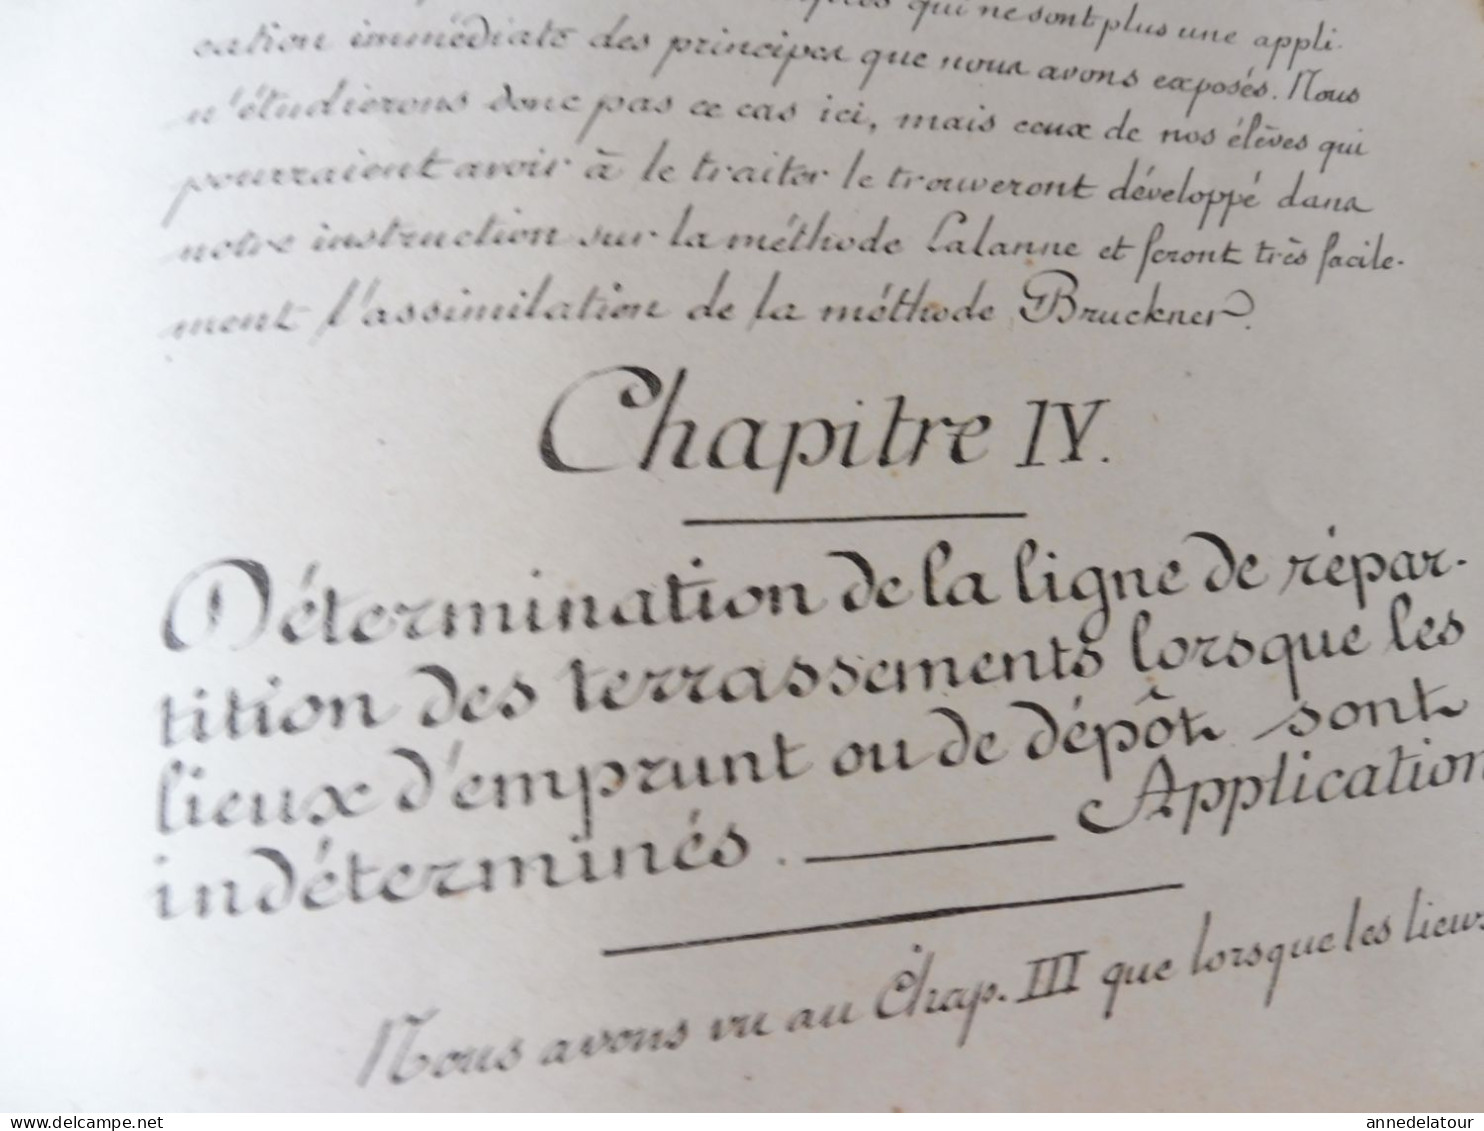 qui ne sont plus une appli-
cation immédiate des principes que nous avons exposés. Nous
n'étudierons donc pas ce cas ici, mais ceux de nos élèves qui
pourraient avoir à le traiter le trouveront développé dans
notre instruction sur la méthode Lalanne et feront très facile-
ment l'assimilation de la méthode Bruckner.
Chapitre IV.
Détermination de la ligne de répar-
tition des terrassements lorsque les
lieux d'emprunt ou de dépôt sont
indéterminés. — Application
Nous avons vu au Chap. III que lorsque les lieux
delcampe.net
annedelatour